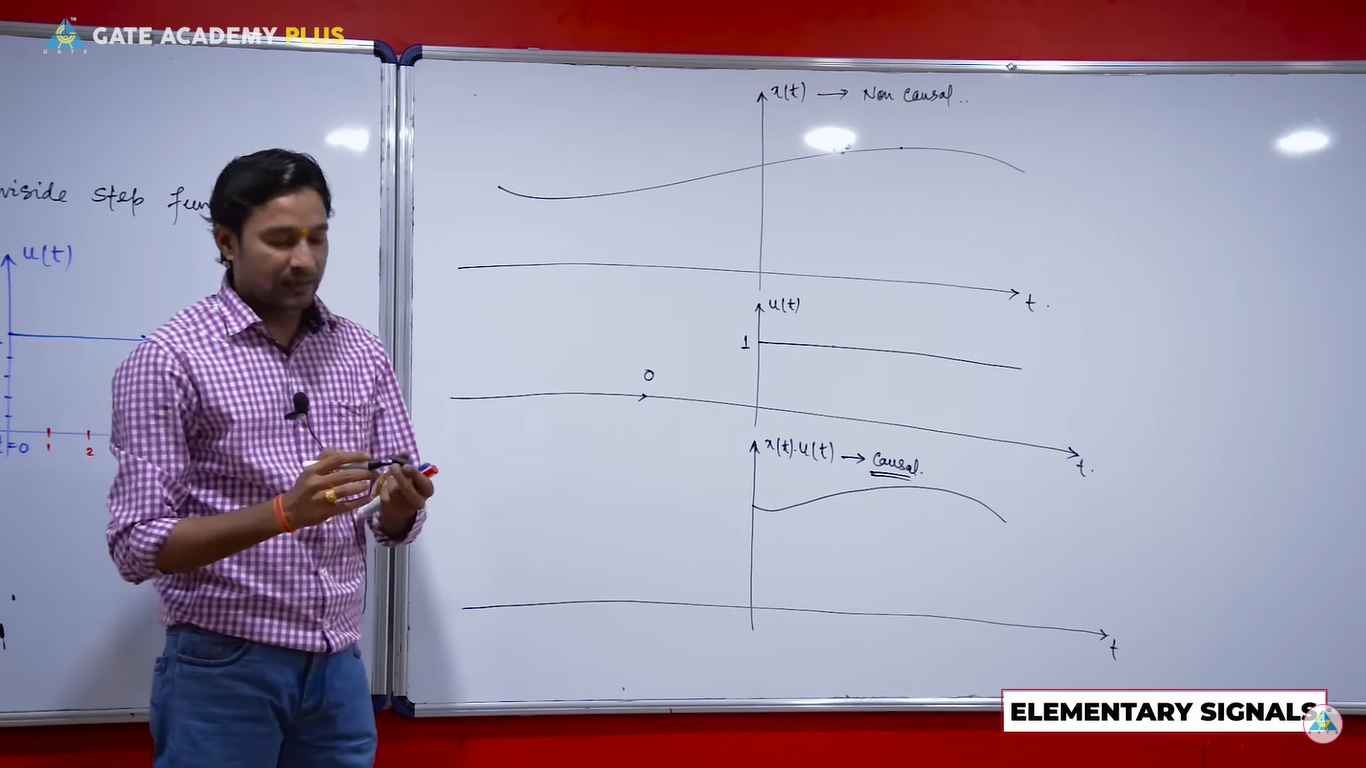 GATE ACADEMY PLUS
GATE
viside step fun
u(t)
t=0
1
2
x(t) → Non Causal..
t.
u(t)
1
0
t.
x(t).u(t) → Causal.
t
ELEMENTARY SIGNALS
GATE